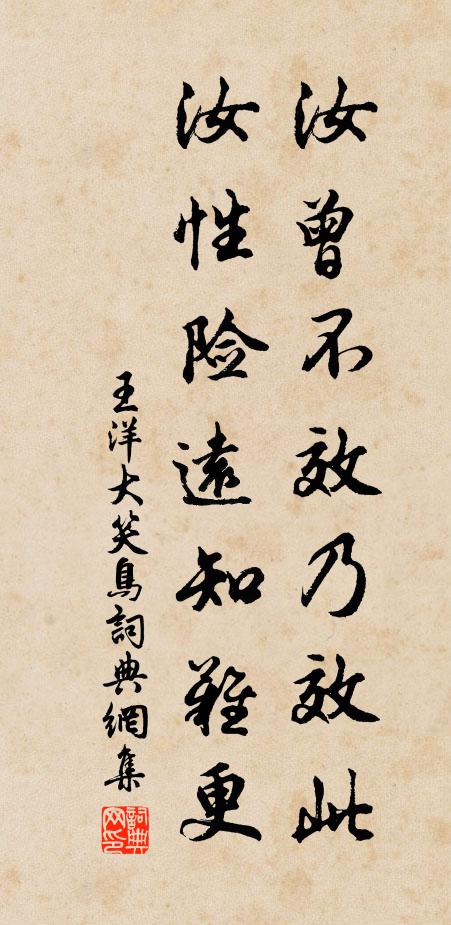 汝曾不效乃效此
汝性险遠知難更
王洋大笑鳥詞典網集
詞典网印